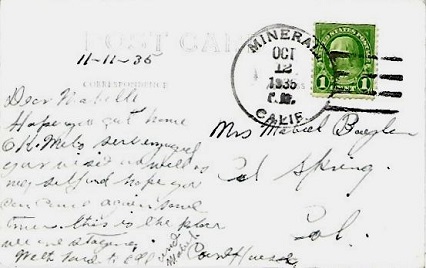 POST CARD
11-11-35
CORRESPONDENCE
MINERAL
OCT
12
1935
P.M.
CALIF.
UNITED STATES POSTAGE
1 1
Dear Mabelle
Hope you got home
O.K. Mets sure enjoyed
your visit as well as
myself and hope you
can come again some
time. this is the place
we are staying.
With Love to all
Mrs Mabel
Col Spring
Col.